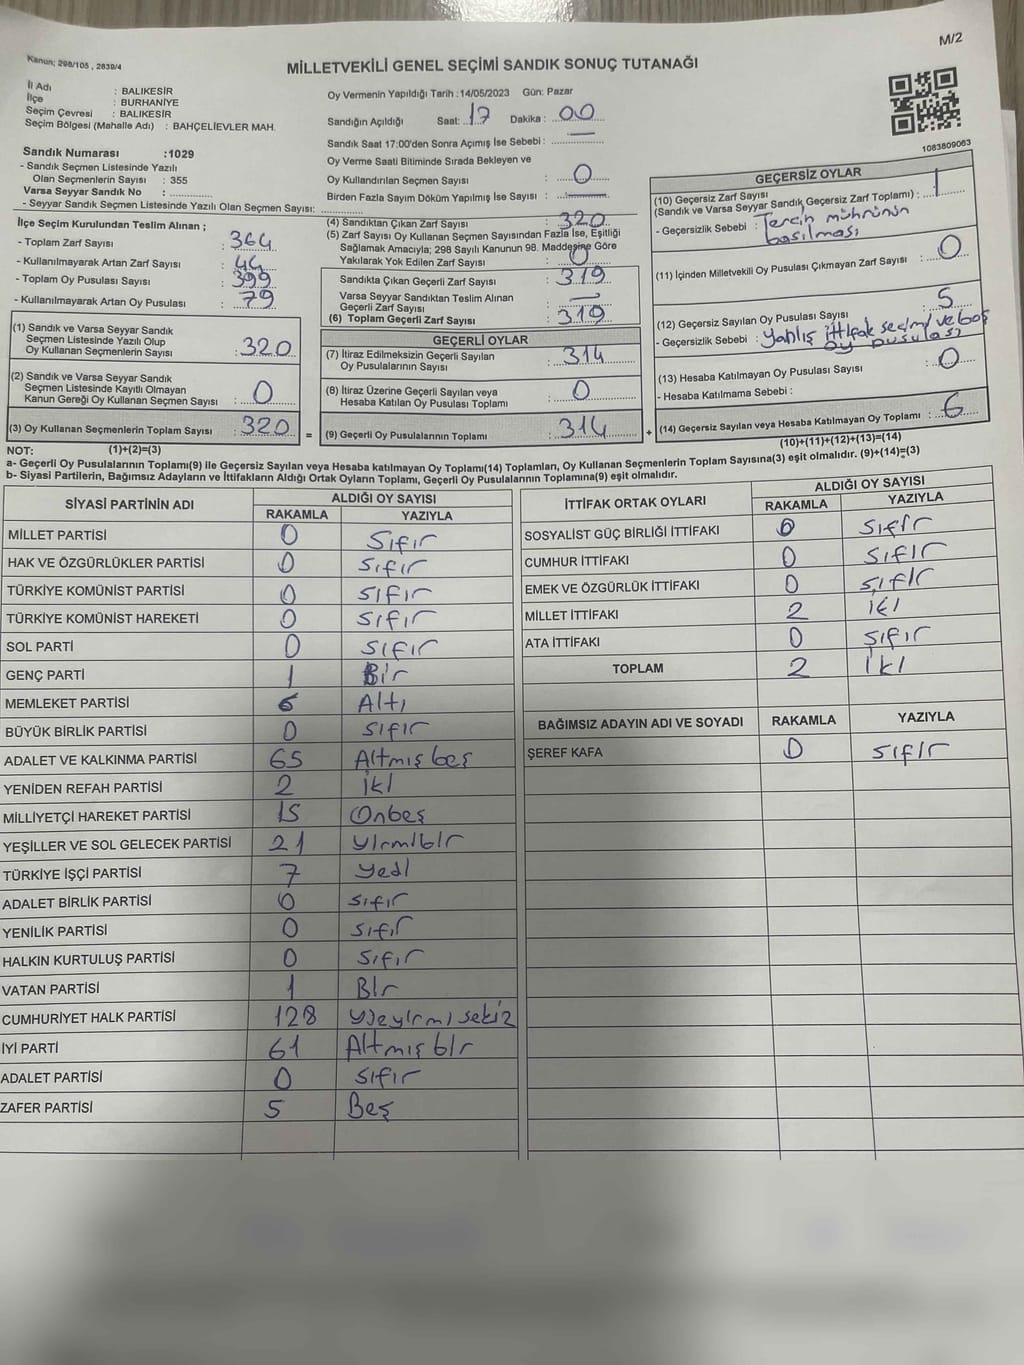 M/2
Kanun; 298/105 , 2839/4
MİLLETVEKİLİ GENEL SEÇİMİ SANDIK SONUÇ TUTANAĞI
İl Adı : BALIKESİR
İlçe : BURHANİYE
Seçim Çevresi : BALIKESİR
Seçim Bölgesi (Mahalle Adı) : BAHÇELİEVLER MAH.
Oy Vermenin Yapıldığı Tarih : 14/05/2023 Gün: Pazar
Sandığın Açıldığı Saat: 17 Dakika : 00
Sandık Saat 17:00'den Sonra Açımış İse Sebebi :
Oy Verme Saati Bitiminde Sırada Bekleyen ve
Oy Kullandırılan Seçmen Sayısı : 0
Birden Fazla Sayım Döküm Yapılmış İse Sayısı :
1083809063
Sandık Numarası :1029
- Sandık Seçmen Listesinde Yazılı
Olan Seçmenlerin Sayısı : 355
Varsa Seyyar Sandık No :
- Seyyar Sandık Seçmen Listesinde Yazılı Olan Seçmen Sayısı:
İlçe Seçim Kurulundan Teslim Alınan ;
- Toplam Zarf Sayısı : 364
- Kullanılmayarak Artan Zarf Sayısı : 44
- Toplam Oy Pusulası Sayısı : 399
- Kullanılmayarak Artan Oy Pusulası : 79
(1) Sandık ve Varsa Seyyar Sandık
Seçmen Listesinde Yazılı Olup
Oy Kullanan Seçmenlerin Sayısı : 320
(2) Sandık ve Varsa Seyyar Sandık
Seçmen Listesinde Kayıtlı Olmayan
Kanun Gereği Oy Kullanan Seçmen Sayısı : 0
(3) Oy Kullanan Seçmenlerin Toplam Sayısı : 320
(1)+(2)=(3)
(4) Sandıktan Çıkan Zarf Sayısı : 320
(5) Zarf Sayısı Oy Kullanan Seçmen Sayısından Fazla İse, Eşitliği
Sağlamak Amacıyla; 298 Sayılı Kanunun 98. Maddesine Göre
Yakılarak Yok Edilen Zarf Sayısı : 0
Sandıkta Çıkan Geçerli Zarf Sayısı : 319
Varsa Seyyar Sandıktan Teslim Alınan
Geçerli Zarf Sayısı :
(6) Toplam Geçerli Zarf Sayısı : 319
GEÇERLİ OYLAR
(7) İtiraz Edilmeksizin Geçerli Sayılan
Oy Pusulalarının Sayısı : 314
(8) İtiraz Üzerine Geçerli Sayılan veya
Hesaba Katılan Oy Pusulası Toplamı : 0
= (9) Geçerli Oy Pusulalarının Toplamı : 314 +
GEÇERSİZ OYLAR
(10) Geçersiz Zarf Sayısı
(Sandık ve Varsa Seyyar Sandık Geçersiz Zarf Toplamı) : 1
- Geçersizlik Sebebi : Tercih mührünün
basılması
(11) İçinden Milletvekili Oy Pusulası Çıkmayan Zarf Sayısı : 0
(12) Geçersiz Sayılan Oy Pusulası Sayısı : 5
- Geçersizlik Sebebi : Yanlış ittifak seçimi ve boş
oy pusulası
(13) Hesaba Katılmayan Oy Pusulası Sayısı : 0
- Hesaba Katılmama Sebebi :
(14) Geçersiz Sayılan veya Hesaba Katılmayan Oy Toplamı : 6
(10)+(11)+(12)+(13)=(14)
NOT:
a- Geçerli Oy Pusulalarının Toplamı(9) ile Geçersiz Sayılan veya Hesaba katılmayan Oy Toplamı(14) Toplamları, Oy Kullanan Seçmenlerin Toplam Sayısına(3) eşit olmalıdır. (9)+(14)=(3)
b- Siyasi Partilerin, Bağımsız Adayların ve İttifakların Aldığı Ortak Oyların Toplamı, Geçerli Oy Pusulalarının Toplamına(9) eşit olmalıdır.
SİYASİ PARTİNİN ADI ALDIĞI OY SAYISI
RAKAMLA YAZIYLA
MİLLET PARTİSİ 0 Sıfır
HAK VE ÖZGÜRLÜKLER PARTİSİ 0 sıfır
TÜRKİYE KOMÜNİST PARTİSİ 0 sıfır
TÜRKİYE KOMÜNİST HAREKETİ 0 sıfır
SOL PARTİ 0 sıfır
GENÇ PARTİ 1 Bir
MEMLEKET PARTİSİ 6 Altı
BÜYÜK BİRLİK PARTİSİ 0 sıfır
ADALET VE KALKINMA PARTİSİ 65 Altmış beş
YENİDEN REFAH PARTİSİ 2 iki
MİLLİYETÇİ HAREKET PARTİSİ 15 Onbeş
YEŞİLLER VE SOL GELECEK PARTİSİ 21 yirmibir
TÜRKİYE İŞÇİ PARTİSİ 7 yedi
ADALET BİRLİK PARTİSİ 0 sıfır
YENİLİK PARTİSİ 0 sıfır
HALKIN KURTULUŞ PARTİSİ 0 sıfır
VATAN PARTİSİ 1 Bir
CUMHURİYET HALK PARTİSİ 128 yüzyirmi sekiz
İYİ PARTİ 61 Altmış bir
ADALET PARTİSİ 0 sıfır
ZAFER PARTİSİ 5 Beş
İTTİFAK ORTAK OYLARI ALDIĞI OY SAYISI
RAKAMLA YAZIYLA
SOSYALİST GÜÇ BİRLİĞİ İTTİFAKI 0 sıfır
CUMHUR İTTİFAKI 0 sıfır
EMEK VE ÖZGÜRLÜK İTTİFAKI 0 sıfır
MİLLET İTTİFAKI 2 iki
ATA İTTİFAKI 0 sıfır
TOPLAM 2 iki
BAĞIMSIZ ADAYIN ADI VE SOYADI RAKAMLA YAZIYLA
ŞEREF KAFA 0 sıfır